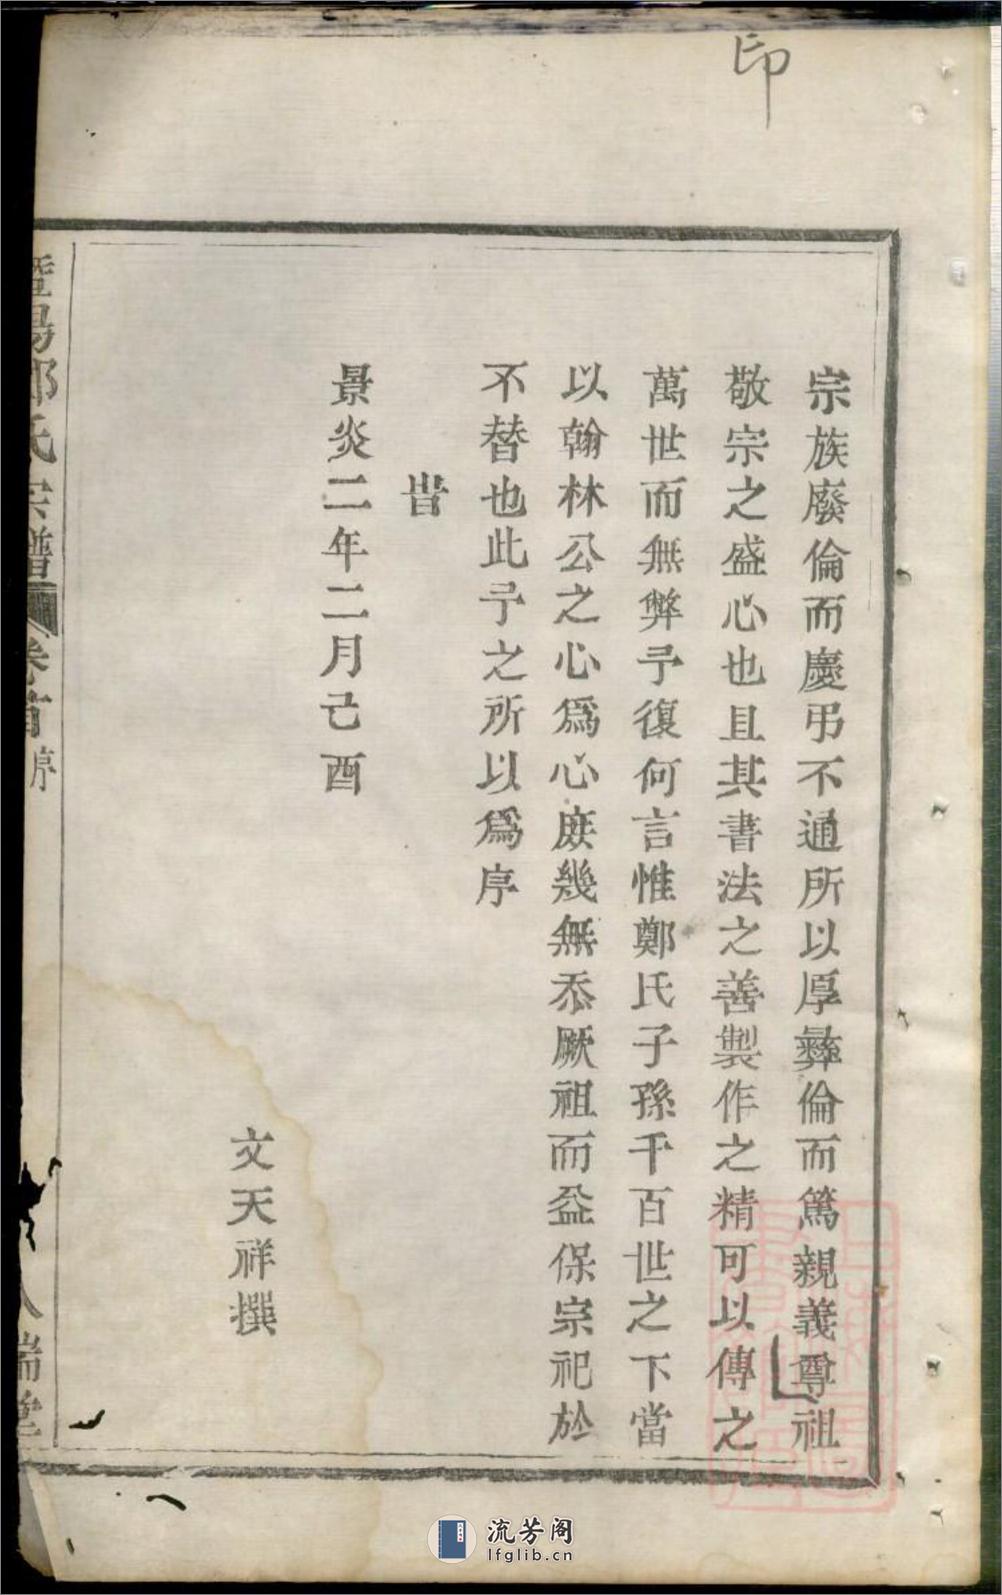 印
宗族廢倫而慶弔不通所以厚彝倫而篤親義尊祖
敬宗之盛心也且其書法之善製作之精可以傳之
萬世而無弊予復何言惟鄭氏子孫千百世之下當
以翰林公之心爲心庶幾無忝厥祖而益保宗祀於
不替也此予之所以爲序
旹
景炎二年二月己酉
文天祥撰
氏宗譜 卷首 序
流芳阁
lfglib.cn